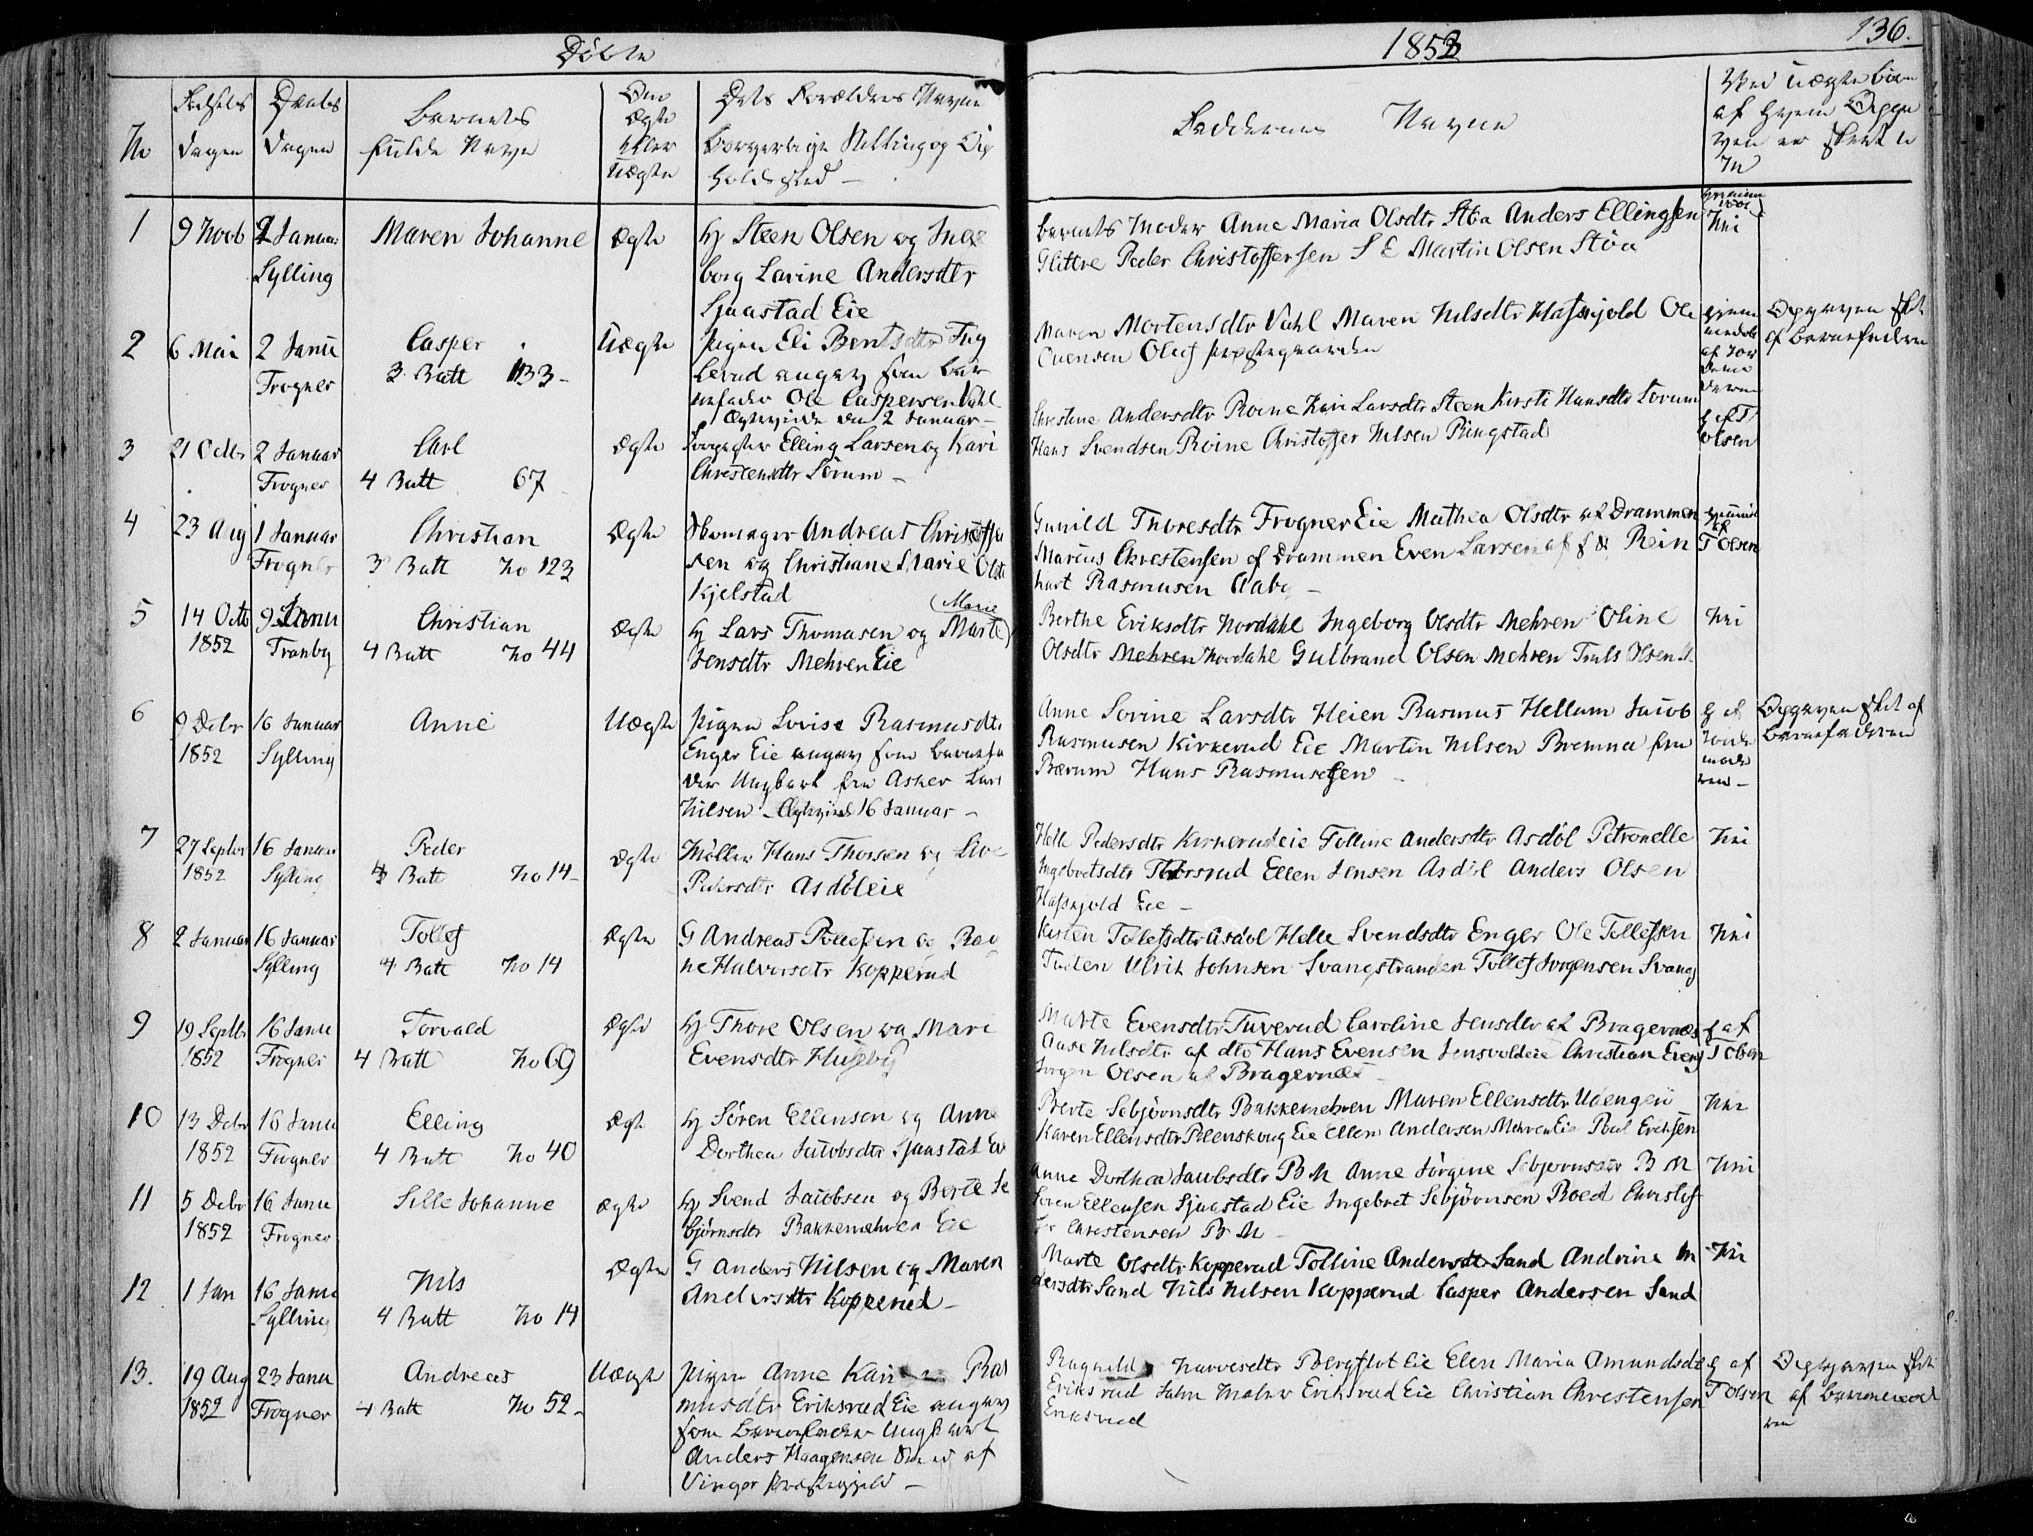 Döbte
1853
136.
No
Fødsels
dagen
Daabs
dagen
Barnets
fulde Navn
Om
Ægte
eller
Uægte
Dets Forældres Navne
borgerlige Stilling og
Faddernes Navne
Ved uægte børn
af hvem Opgi
ven er skeet
1
9 Novb
2 Januar
Sylling
Maren Johanne
Ægte
Hj Steen Olsen og Inge
borg Lavine Andersdtr
Sjaastad Eie
Barnets Moder Anne Maria Olsdtr Støa Anders Ellingsen
Glittre Peder Christoffersen S E Martin Olsen Støa
2
6 Mai
2 Janu
Frogner
Casper
3 Batt 133
Uægte
Pigen Eli Bentsdtr
angav som Bar
nefader Ole Caspersen Vahl
2 Januar
Maren Mortensdtr Vahl Maren Nilsdtr Hasskjold Ole
Evensen Oluf Præstegaarden
Opgaven skt
af Barnefaderen
3
21 Octbr
2 Januar
Frogner
Carl
4 Batt 67
Ægte
Elling Larsen og Kari
Christensdtr Sørum
Christine Andersdtr Roine Kari Larsdtr Steen Kirsti Hansdtr Sorum
Hans Svendsen Roine Christoffer Nilsen Ringstad
Olsen
4
23 Aug
1 Januar
Frogner
Christian
3 Batt No 123
Ægte
Skomager Andreas Christoffer
sen og Christiane Marie Olsd
Kjelstad
Gunild Thoresdtr Frogner Eie Mathea Olsdtr af Drammen
Marcus Christensen af Drammen Even Larsen af Rein
hart Rasmusen Aaby
T Olsen
5
14 Octb
1852
9 Janu
Tranby
Christian
4 Batt No 44
Ægte
Hj Lars Thomasen og Marte (Marie)
Jensdtr Mehren Eie
Berthe Eriksdtr Nordahl Ingeborg Olsdtr Mehren Oline
Olsdtr Mehren Nordahl Gulbrand Olsen Mehren Truls Olsen
6
9 Debr
1852
16 Januar
Sylling
Anne
Uægte
Pigen Lovise Rasmusdtr
Enger Eie angav som Barnefa
der Ungkarl fra Asker Lars
Nilsen 16 Januar
Anne Sorine Larsdtr Heien Rasmus Hellum Jacob
Rasmusen Kirkerud Eie Martin Nilsen Bremna fra
Bærum Hans Rasmussen
Opgaven skt af
Barnefaderen
7
27 Septbr
1852
16 Januar
Sylling
Peder
4 Batt No 14
Ægte
Møller Hans Thorsen og Live
Pedersdtr Asdøleie
Helle Pedersdtr Kirkerudeie Tolline Andersdtr Asdøl Petronelle
Ingebretsdtr Thorsrud Ellen Jensen Asdøl Anders Olsen
Hasskjold Eie
8
2 Januar
16 Januar
Sylling
Tollef
4 Batt No 14
Ægte
G Andreas Tollefsen og
ne Halvorsdtr Kopperud
Kirsten Tollefsdtr Asdøl Helle Svendsdtr Enger Ole Tollefsen
Ulrik Johnsen Svangstranden Tollef Jorgensen Svang
9
19 Septbr
1852
16 Janu
Frogner
Torvald
4 Batt No 69
Ægte
Hj Thore Olsen og Mari
Evensdtr Huseby
Marte Evensdtr Tuverud Caroline Jensdtr af Bragernæs
Aase Nilsdtr af dto Hans Evensen Jensvoldeie Christian
Jorgen Olsen af Bragernæs
af
T Olsen
10
13 Debr
1852
16 Janu
Frogner
Elling
4 Batt No 40
Ægte
Hj Søren Ellensen og Anne
Dorthea Jacobsdtr Sjaastad Eie
Berte Sebjørnsdtr Bakkemehren Maren Ellensdtr Uuengen
Karen Ellensdtr Eie Ellen Andersen Mehren Eie Poul Eriksen
11
5 Debr
1852
16 Janu
Frogner
Sille Johanne
Ægte
Hj Svend Jacobsen og Berte Se
bjørnsdtr Bakkemehren Eie
Anne Dorthea Jacobsdtr B M Anne Jörgine Sebjørnsdtr B M
Søren Ellensen Sjaastad Eie Ingebret Sebjørnsen Roed Christof
fer Christensen B M
12
1 Jan
16 Janu
Sylling
Nils
4 Batt No 14
Ægte
G Anders Nilsen og Maren
Andersdtr Kopperud
Marte Olsdtr Kopperud Tolline Andersdtr Sand Andrine An
dersdtr Sand Nils Nilsen Kopperud Casper Andersen Sand
13.
19 Aug
1852
23 Janu
Frogner
Andreas
4 Batt No 52
Uægte
Pigen Anne Kari Ras
musdtr Eriksrud Eie angav
som Barnefader Ungkarl
Anders Haagensen af
Vinger Præstegjeld
Ragnild Narvesdtr Bergflot Eie Elen Maria Amundsdtr
Eriksrud Eriksrud Eie Christian Christensen
Eriksrud
af
T Olsen
Opgaven skt
af Barnemod
ren